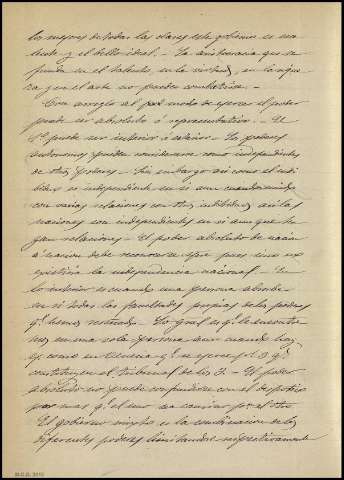 los mejores de todas las clases este gobierno es exce
lente y el bello ideal. - La aristocracia que se
funda en el talento, en la virtud, en la rique
za y en el arte no puede combatirse. -
Con arreglo al modo de ejercer el poder
puede ser absoluto ó representativo. - El
1º puede ser interior ó exterior. Los poderes
autónomos pueden considerarse como independientes
de otros poderes. Sin embargo así como el indi
viduo es independiente en si aun cuando unido
con varias relaciones con otros individuos así las
naciones son independientes en si aunque ten
gan relaciones. El poder absoluto de nación
á nación debe reconocerse que pues sino no
existiría la independencia nacional. En
lo interior es cuando una persona absorbe
en si todas las facultades propias de los poderes
q.e hemos reseñado. Lo gral es q.e se encuentre
en una sola persona aun cuando hay
como en Venecia q.e se ejerce p.r 3 q.e
constituyen el tribunal de los 3. - El poder
absoluto no puede confundirse con el despótico
por mas q.e el uno se convierta por el otro
El gobierno mixto es la combinación de los
diferentes poderes limitandose respectivamente